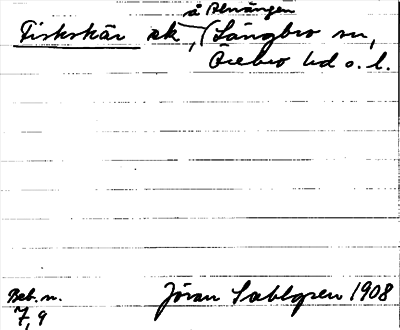 å Alnängen
Fiskskär sk, (Längbro sn,
Örebro hd o. l.
Beb. n.
7, 9
Jöran Sahlgren 1908